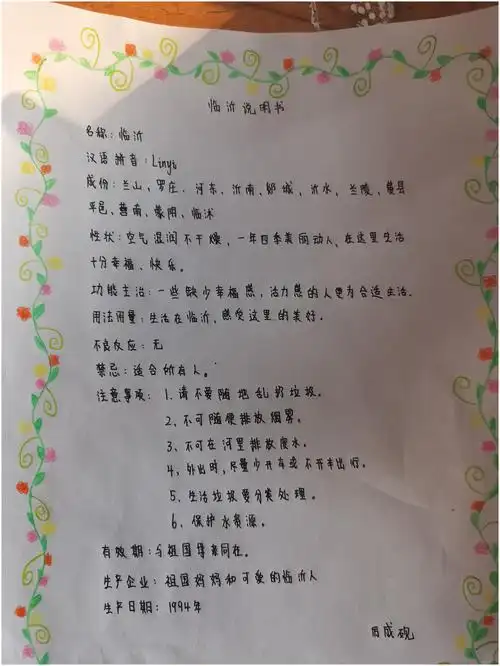 临沂说明书
名称：临沂
汉语拼音：Linyi
成份：兰山、罗庄、河东、沂南、郯城、沂水、兰陵、费县
平邑、莒南、蒙阴、临沭
性状：空气湿润不干燥，一年四季美丽动人，在这里生活
十分幸福、快乐。
功能主治：一些缺少幸福感，活力感的人更为合适生活.
用法用量：生活在临沂，感受这里的美好.
不良反应：无
禁忌：适合所有人。
注意事项：1.请不要随地乱扔垃圾。
2、不可随便排放烟雾。
3、不可在河里排放废水。
4、外出时，尽量少开车或不开车出行。
5、生活垃圾要分类处理。
6、保护水资源。
有效期：与祖国母亲同在。
生产企业：祖国妈妈和可爱的临沂人
生产日期：1994年
成砚